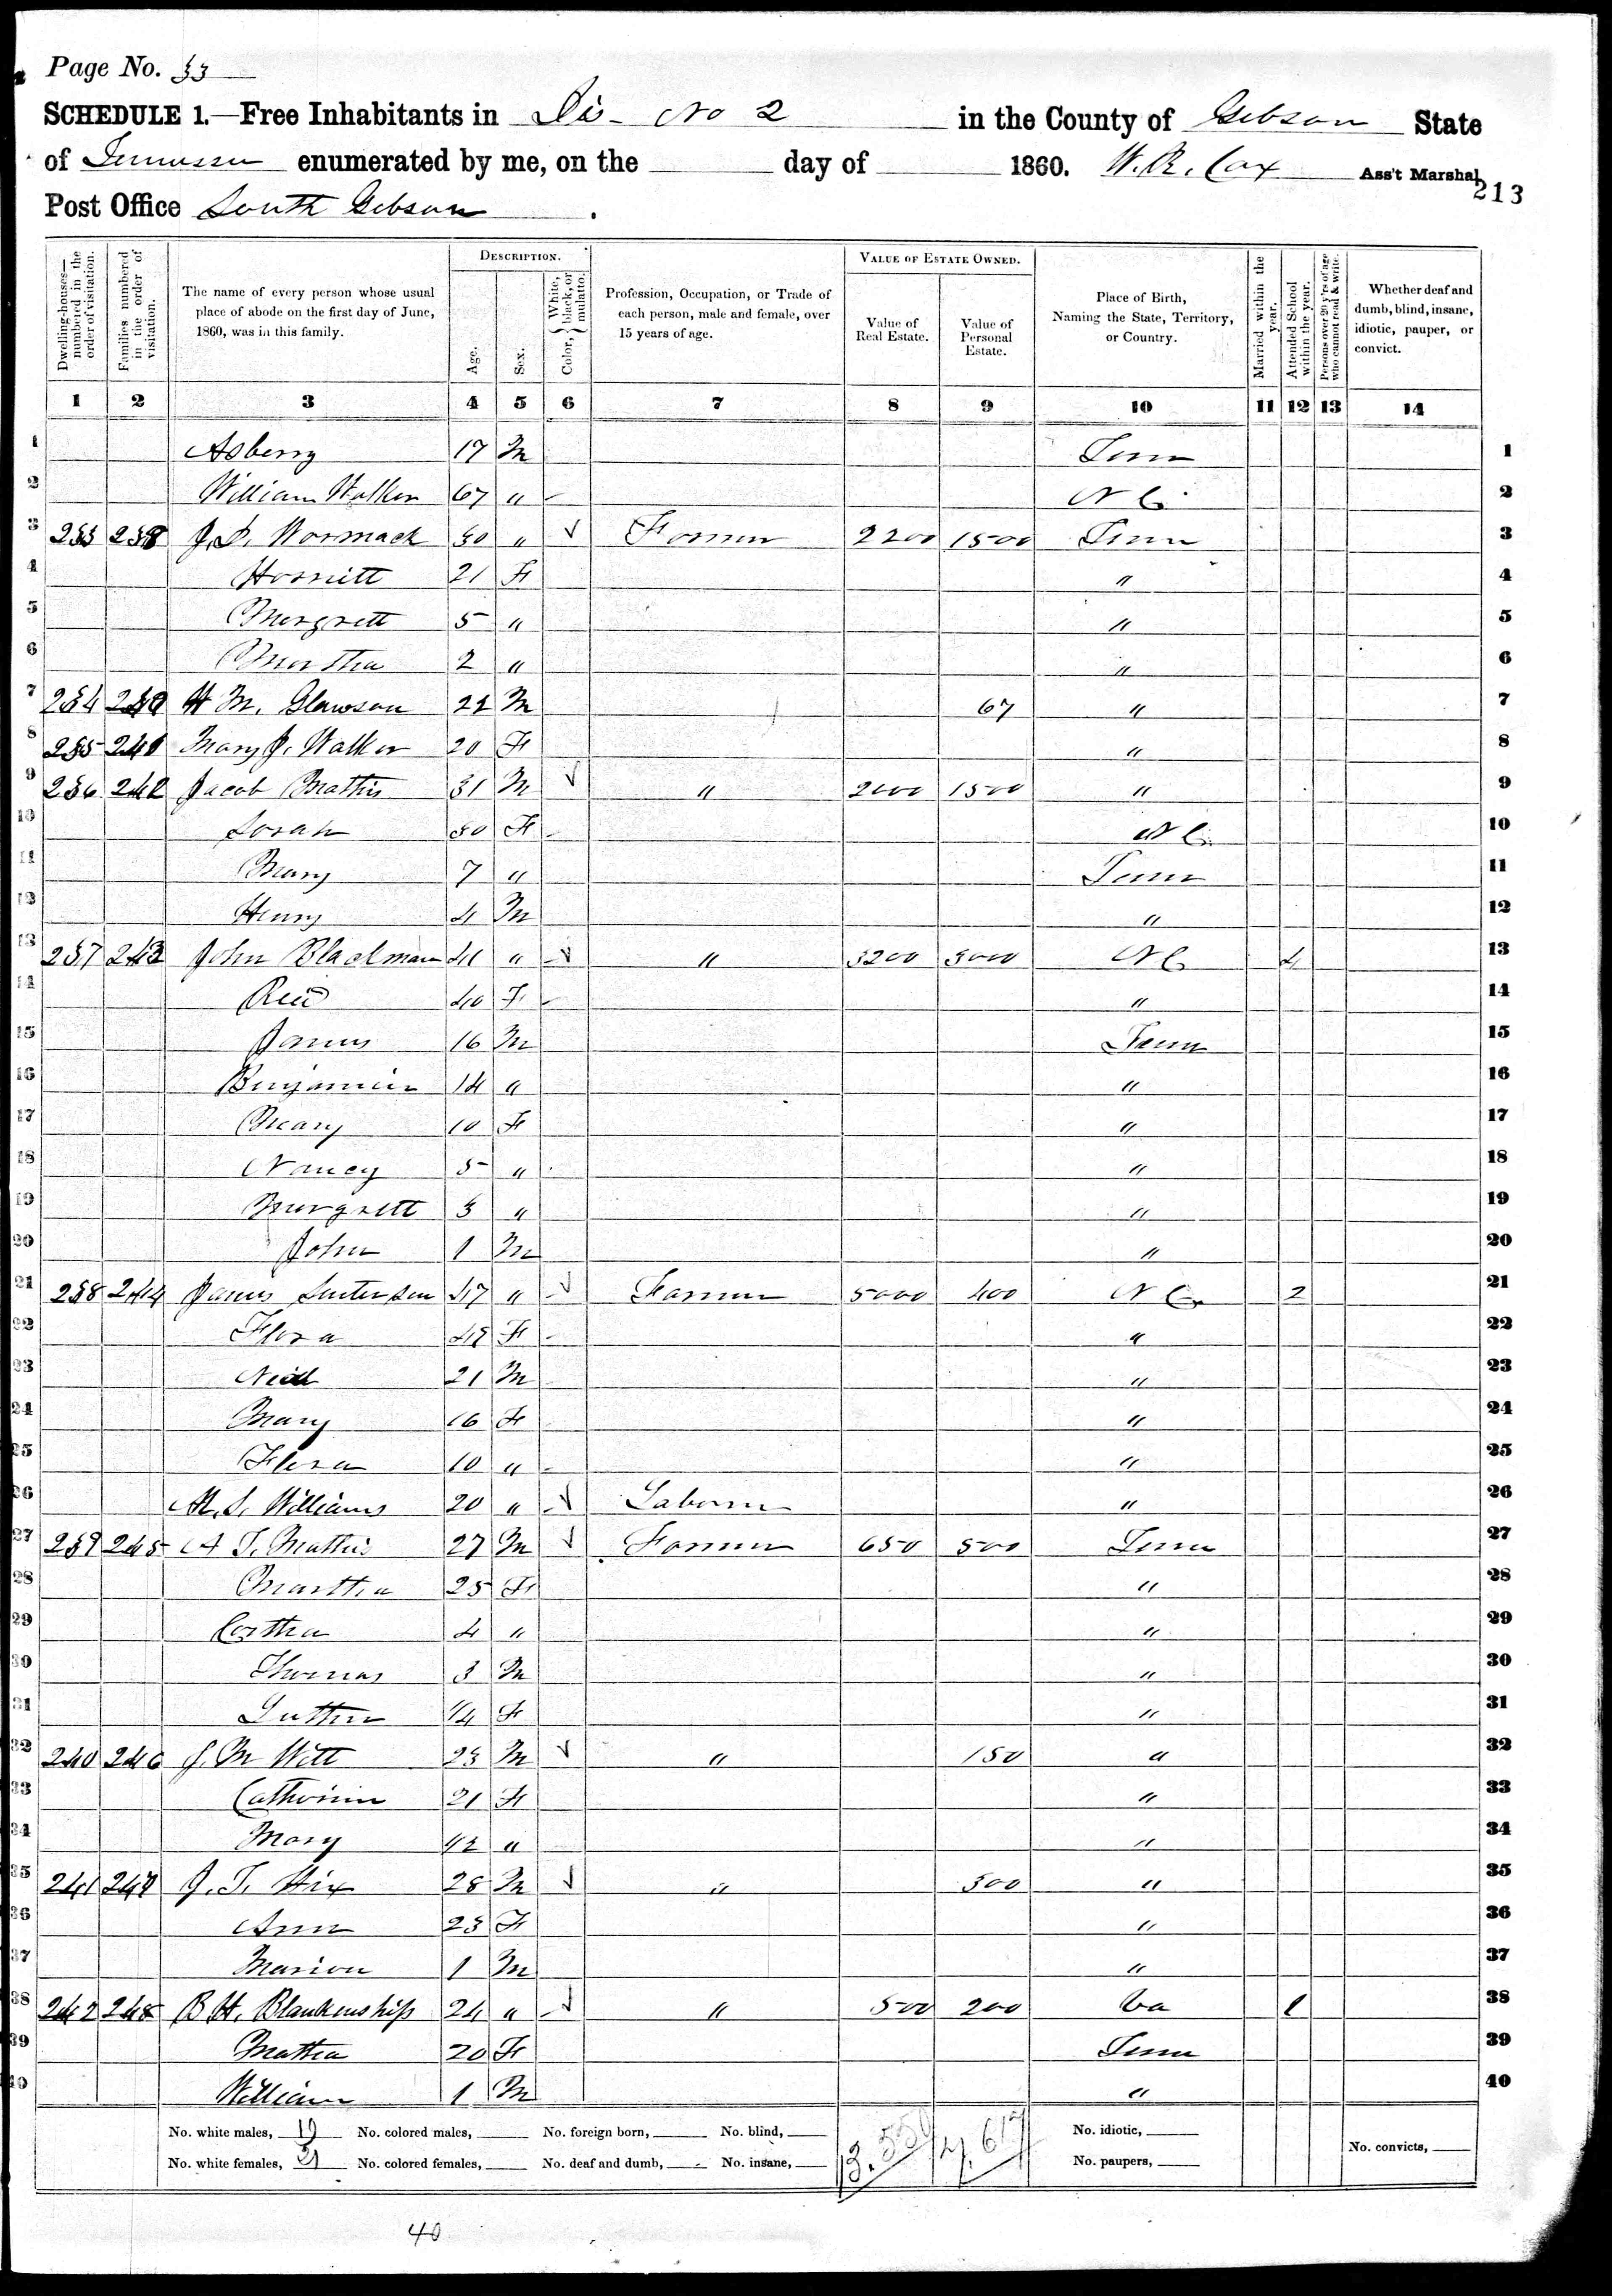 Page No. 33
SCHEDULE 1.—Free Inhabitants in Dis- No 2 in the County of Gibson State
of Tennessee enumerated by me, on the day of 1860. W. R. Cox Ass't Marshal
213
Post Office South Gibson.
Dwelling-houses—numbered in the order of visitation.
Families numbered in the order of visitation.
The name of every person whose usual place of abode on the first day of June, 1860, was in this family.
DESCRIPTION.
Age.
Sex.
Color, White, black, or mulatto.
Profession, Occupation, or Trade of each person, male and female, over 15 years of age.
VALUE OF ESTATE OWNED.
Value of Real Estate.
Value of Personal Estate.
Place of Birth, Naming the State, Territory, or Country.
Married within the year.
Attended School within the year.
Persons over 20 y'rs of age who cannot read & write.
Whether deaf and dumb, blind, insane, idiotic, pauper, or convict.
1 2 3 4 5 6 7 8 9 10 11 12 13 14
1 Asberry 17 M Tenn 1
2 William Walker 67 " N C 2
3 233 238 J. D. Wormack 30 " Farmer 2200 1500 Tenn 3
4 Harriett 21 F " 4
5 Margrett 5 " " 5
6 Martha 2 " " 6
7 234 240 H M. Glawson 22 M 67 " 7
8 235 241 Mary J. Walker 20 F " 8
9 236 242 Jacob Mathis 31 M " 2000 1500 " 9
10 Sarah 30 F N C. 10
11 Mary 7 " Tenn 11
12 Henry 4 M " 12
13 237 243 John Blackman 41 " " 3200 3000 N C 4 13
14 40 F " 14
15 James 16 M Tenn 15
16 Benjamin 14 " " 16
17 Mary 10 F " 17
18 Nancy 5 " " 18
19 Margrett 3 " " 19
20 John 1 M " 20
21 238 244 James 47 " Farmer 5000 400 N C 2 21
22 Flora 48 F " 22
23 Neill 21 M " 23
24 Mary 16 F " 24
25 Flora 10 " " 25
26 M. S. Williams 20 " Laborer " 26
27 239 245 A T. Mathis 27 M Farmer 650 500 Tenn 27
28 Martha 25 F " 28
29 4 " " 29
30 Thomas 3 M " 30
31 Luther 1/4 F " 31
32 240 246 J. M Witt 23 M " 150 " 32
33 Catharine 21 F " 33
34 Mary 1/2 " " 34
35 241 247 J. T. Hix 28 M " 300 " 35
36 Ann 23 F " 36
37 Marion 1 M " 37
38 242 248 B H. Blankenship 24 " " 500 200 Va 1 38
39 Martha 20 F Tenn 39
40 William 1 M " 40
No. white males, 19 No. colored males, No. foreign born, No. blind, No. idiotic,
No. white females, 21 No. colored females, No. deaf and dumb, No. insane, No. paupers, No. convicts,
13.550 7,617
40